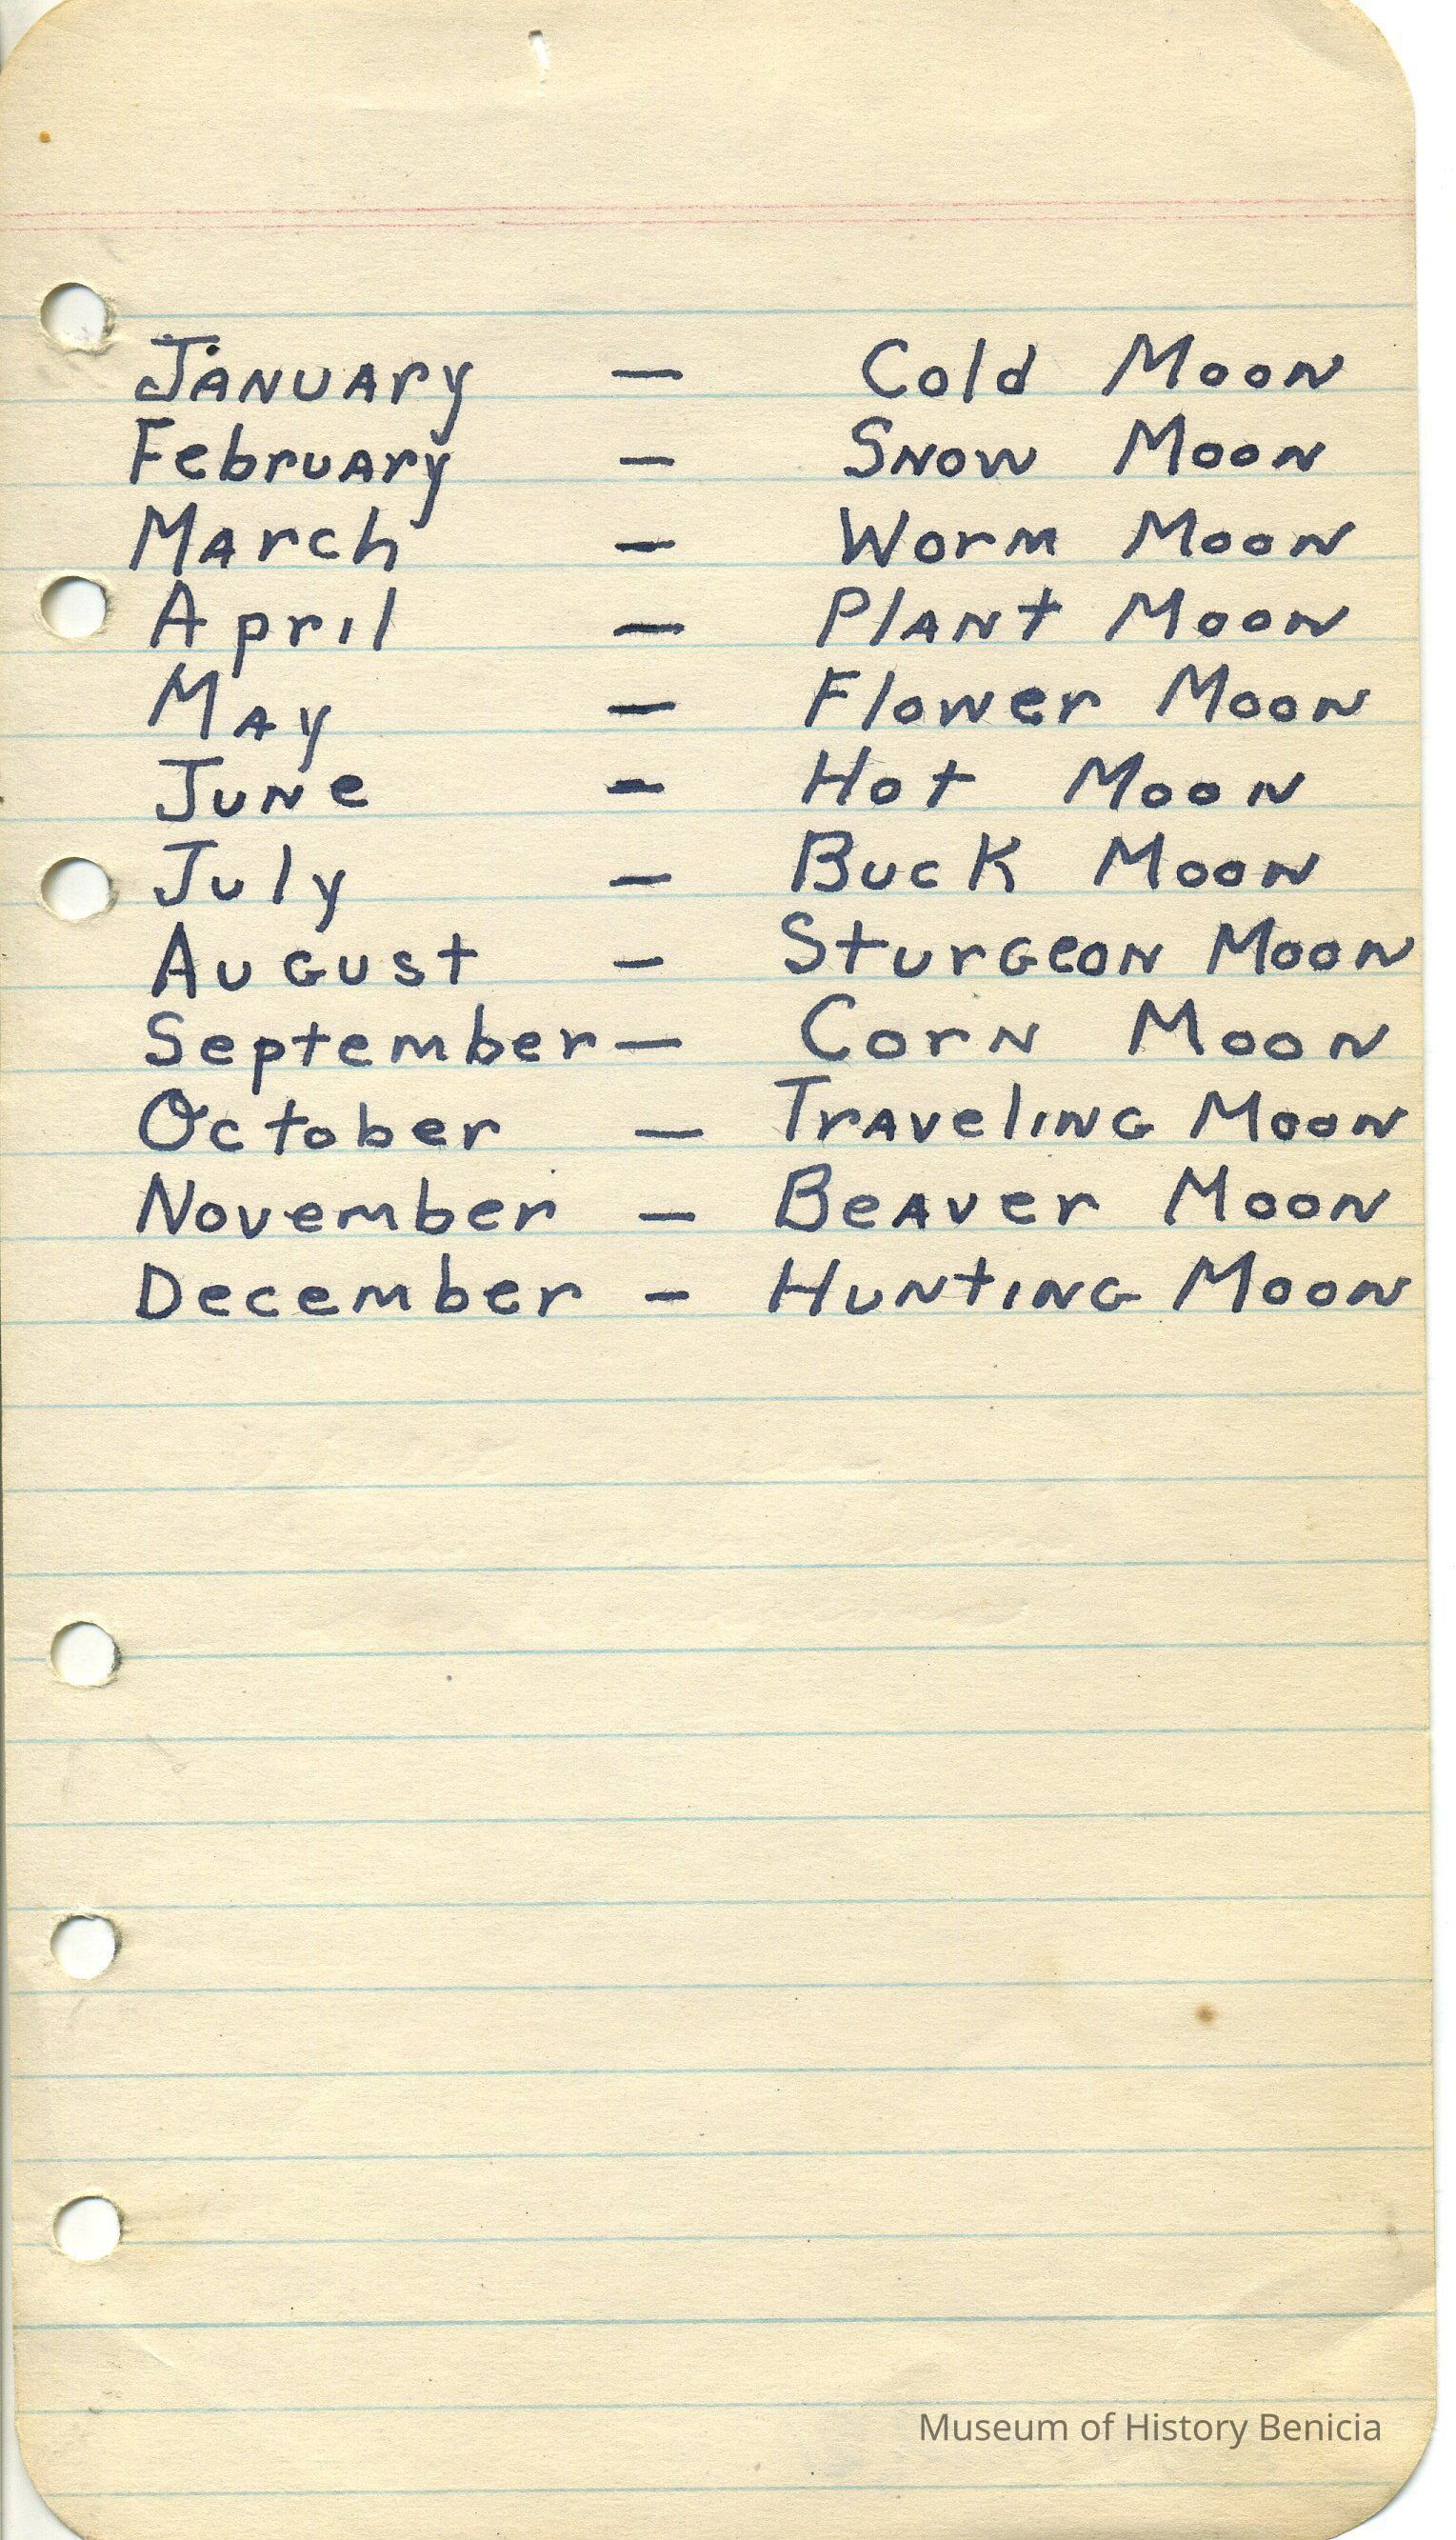 January — Cold Moon
February — Snow Moon
March — Worm Moon
April — Plant Moon
May — Flower Moon
June — Hot Moon
July — Buck Moon
August — Sturgeon Moon
September — Corn Moon
October — Traveling Moon
November — Beaver Moon
December — Hunting Moon
Museum of History Benicia